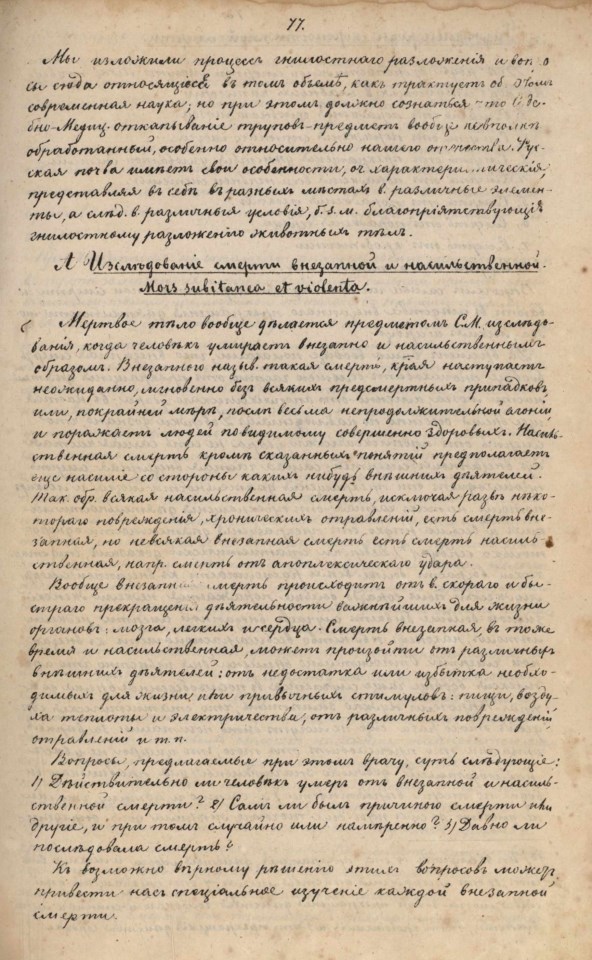 77.
Мы изложили процессъ гнилостнаго разложенія и вопро
сы сюда относящіеся въ томъ объемѣ, какъ трактуетъ об этомъ
современная наука; но при этомъ должно сознаться что Суде
бно-Медиц. откапываніе труповъ предметъ вообще не вполнѣ
обработанный, особенно относительно нашего отечества. Рус-
ская почва имѣетъ свои особенности, оч характеристическія
представляя въ себѣ въ разныхъ мѣстахъ в. различные элемен-
ты, а слѣд. в. различныя условія, б. и. м. благопріятствующія
гнилостному разложенію животныхъ тѣлъ.
А Изслѣдованіе смерти внезапной и насильственной.
Mors subitanea et violenta.
Мертвое тѣло вообще дѣлается предметомъ С.М. изслѣдо-
ванія, когда человѣкъ умираетъ внезапно и насильственнымъ
образомъ. Внезапною назыв. такая смерть, края наступаетъ
неожиданно, мгновенно безъ всякихъ предсмертныхъ припадковъ
или, покрайней мѣрѣ, послѣ весьма непродолжительной агоніи
и поражаетъ людей повидимому совершенно здоровыхъ. Насиль-
ственная смерть кромѣ сказанныхъ понятій предполагаетъ
еще насиліе со стороны какихъ нибудь внѣшнихъ дѣятелей.
Так. обр. всякая насильственная смерть, исключая развѣ нѣко-
тораго поврежденія, хроническихъ отравленій, есть смерть вне-
запная, но невсякая внезапная смерть есть смерть насиль-
ственная, напр. смерть отъ апоплексическаго удара.
Вообще внезапная смерть происходитъ отъ в. скораго и бы-
страго прекращенія дѣятельности важнѣйшихъ для жизни
органовъ: мозга, легкихъ и сердца. Смерть внезапная, въ тоже
время и насильственная, можетъ произойти отъ различныхъ
внѣшнихъ дѣятелей: отъ недостатка или избытка необхо-
димыхъ для жизни или привычныхъ стимуловъ: пищи, возду-
ха теплоты и электричества, отъ различныхъ поврежденій
отравленій и т.п.
Вопросы, предлагаемые при этомъ врачу, суть слѣдующіе:
1) Дѣйствительно ли человѣкъ умеръ отъ внезапной и насиль-
ственной смерти? 2) Самъ ли былъ причиною смерти или
другіе, и при томъ случайно или намѣренно? 3) Давно ли
послѣдовала смерть?
Къ возможно вѣрному рѣшенію этихъ вопросовъ можетъ
привести насъ спеціальное изученіе каждой внезапной
смерти.